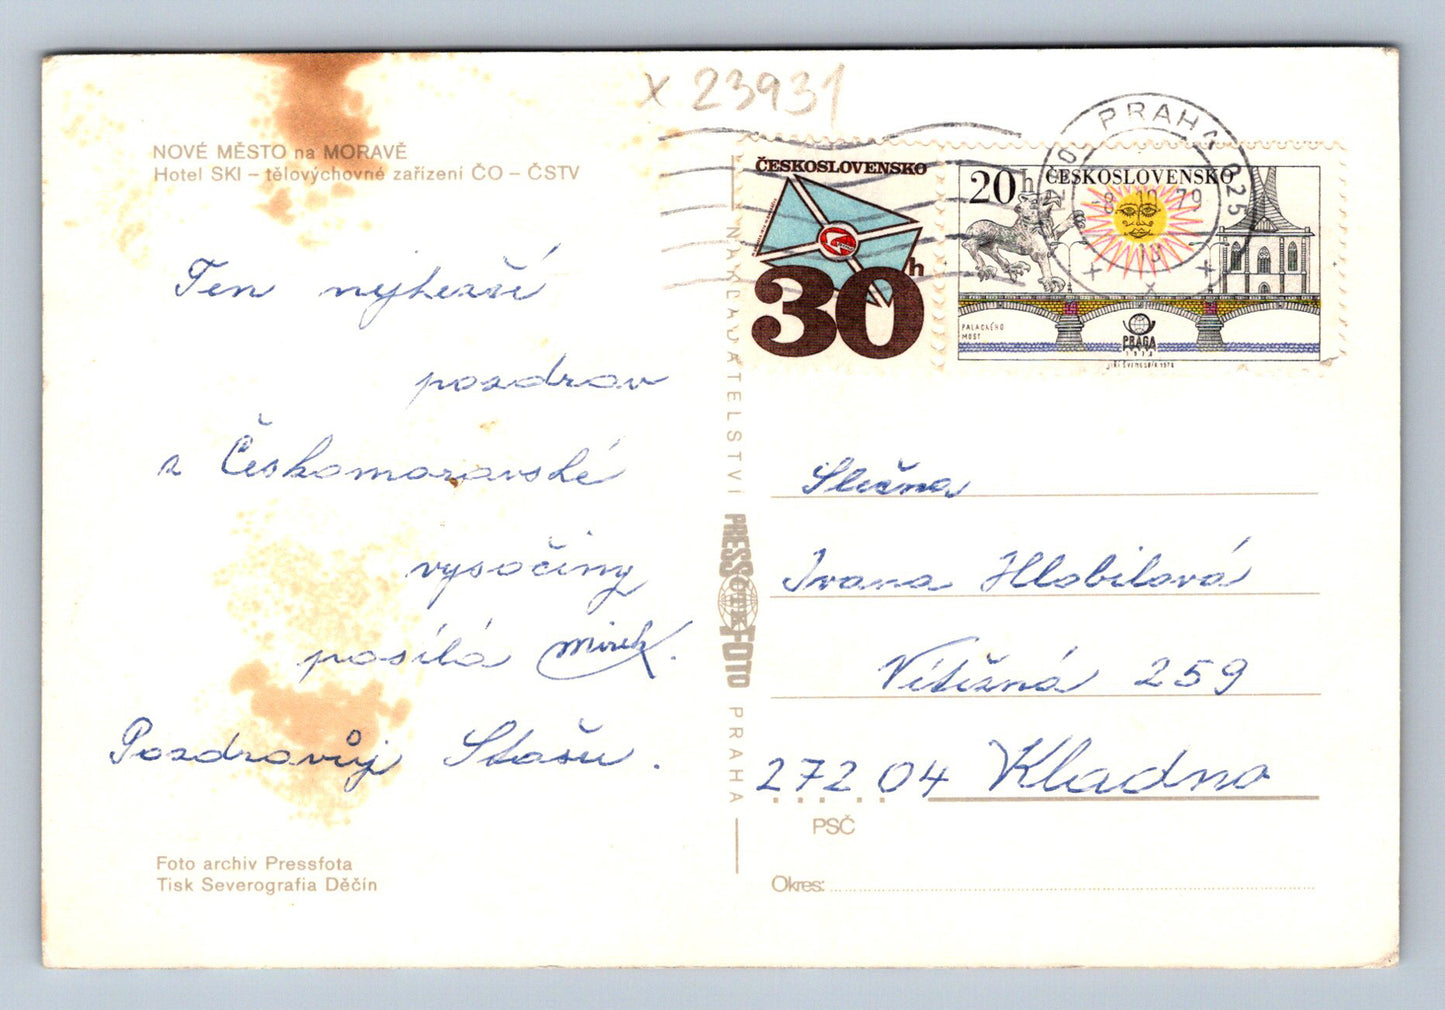 x 23931
NOVÉ MĚSTO na MORAVĚ
Hotel SKI – tělovýchovné zařízení ČO – ČSTV
Ten nejhezčí
pozdrav
z Českomoravské
vysočiny
posílá Mirek.
Pozdravůj Stašu.
Foto archiv Pressfota
Tisk Severografia Děčín
NAKLADATELSTVÍ PRESSFOTO PRAHA
ČTK
ČESKOSLOVENSKO
30h
20h ČESKOSLOVENSKO
PALACKÉHO
MOST
PRAGA
1978
JIŘÍ ŠVENGSBÍR 1978
PRAHA 025
-8.10.79
Slečna
Ivana Hlobilová
Vítězná 259
272 04 Kladno
PSČ
Okres: